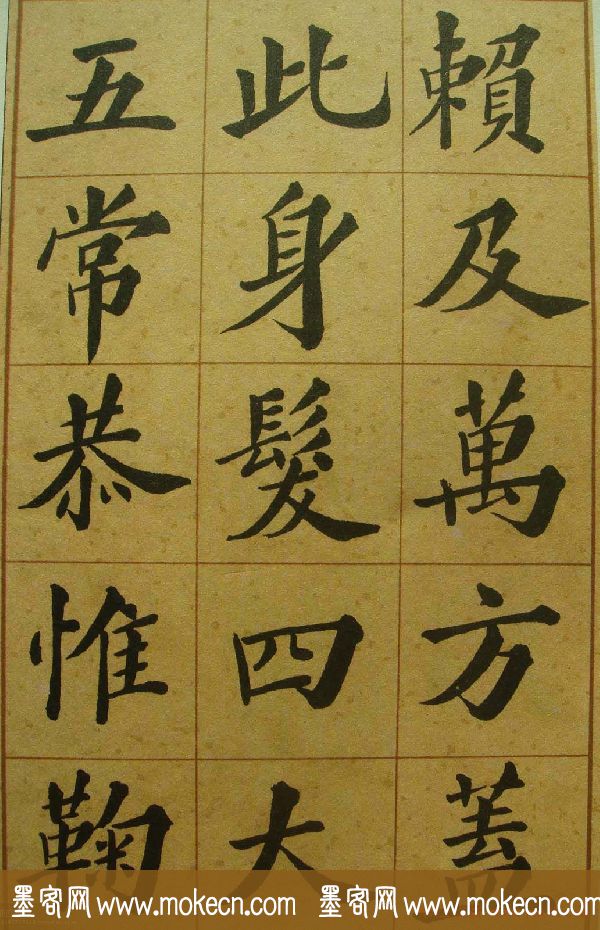 賴及萬方蓋
此身髮四大
五常恭惟鞠
墨客网 www.mokecn.com 墨客网 www.mokecn.com